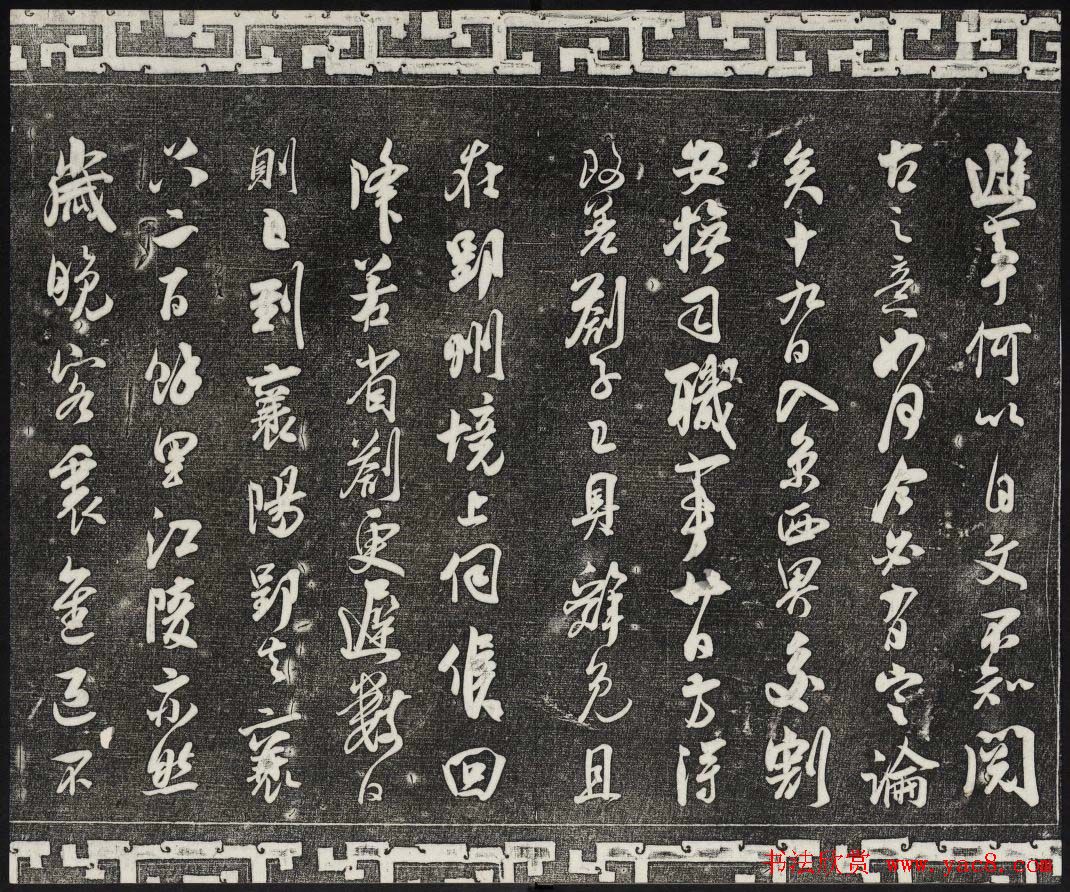 避年何以自文不知阅
古之意如何今必有定論
矣十九日入京西界交割
安撫司職事廿日方得
改差劄子已具辭免且
在郢州境上伺候回
降若省劄更遲數日
則已到襄陽郢去襄
八二百餘里江陵亦然
歲晚客裏進退不
书法欣赏 www.yac8.com